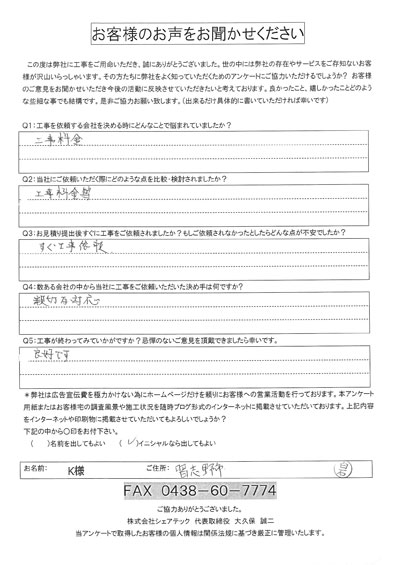 お客様のお声をお聞かせください
この度は弊社に工事をご用命いただき、誠にありがとうございました。世の中には弊社の存在やサービスをご存知ないお客
様が沢山いらっしゃいます。その方たちに弊社をよく知っていただくためのアンケートにご協力いただけるでしょうか? お客様
のご意見をお聞かせいただき今後の活動に反映させていただきたいと考えております。良かったこと、嬉しかったことどのよう
な些細な事でも結構です。是非ご協力お願い致します。(出来るだけ具体的に書いていただければ幸いです)
Q1:工事を依頼する会社を決める時にどんなことで悩まれていましたか?
工事料金
Q2:当社にご依頼いただく際にどのような点を比較・検討されましたか?
工事料金等
Q3:お見積り提出後すぐに工事をご依頼されましたか?もしご依頼されなかったとしたらどんな点が不安でしたか?
すぐ工事依頼
Q4:数ある会社の中から当社に工事をご依頼いただいた決め手は何ですか?
親切な対応
Q5:工事が終わってみていかがですか?忌憚のないご意見を頂戴できましたら幸いです。
良好です
＊弊社は広告宣伝費を極力かけない為にホームページだけを頼りにお客様への営業活動を行っております。本アンケート
用紙またはお客様宅の調査風景や施工状況を随時ブログ形式のインターネットに掲載させていただいております。上記内容
をインターネットや印刷物に掲載させていただいてもよろしいでしょうか?
下記の中から〇印をお付下さい。
( )名前を出してもよい (✓)イニシャルなら出してもよい
お名前: K様 ご住所: 習志野市
FAX 0438-60-7774
ご協力ありがとうございました。
株式会社シェアテック 代表取締役 大久保 誠二
当アンケートで取得したお客様の個人情報は関係法規に基づき厳正に管理いたします。